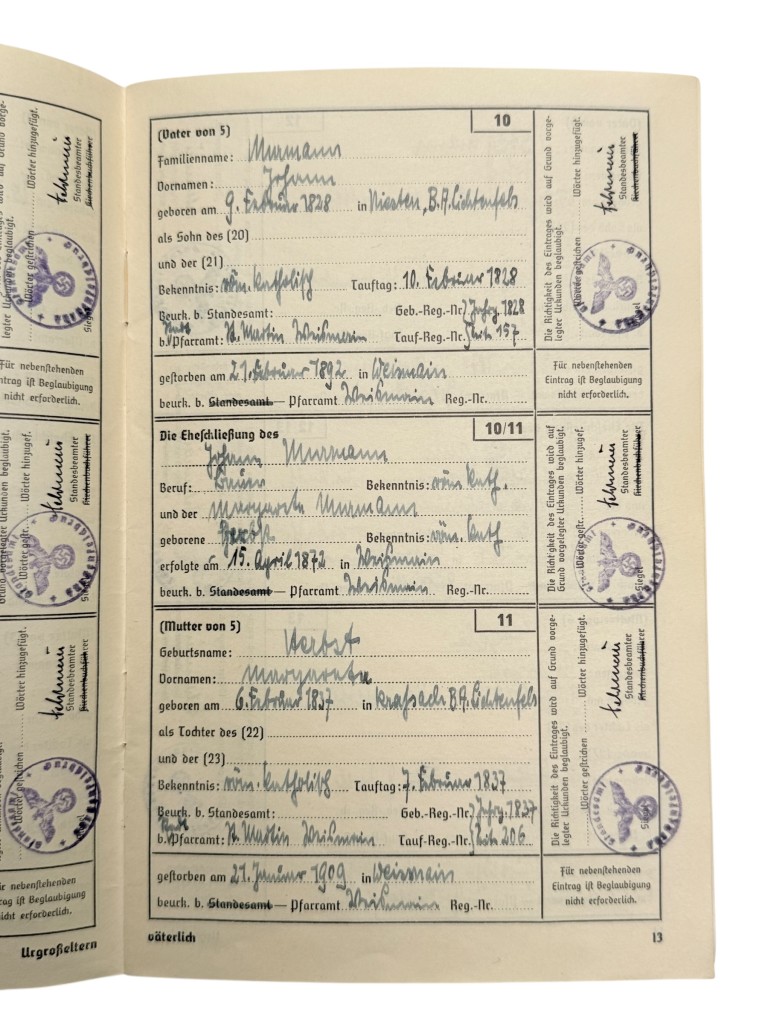 10
(Vater von 5)
Familienname: Murmann
Vornamen: Johann
geboren am 9. Februar 1828 in Niesten, B.A. Lichtenfels
als Sohn des (20)
und der (21)
Bekenntnis: röm. katholisch Tauftag: 10. Februar 1828
Beurk. b. Standesamt: Geb.-Reg.-Nr. Jahrg. 1828
b. Pfarramt: St. Martin Weismain Tauf-Reg.-Nr. Seite 157
gestorben am 21. Februar 1892 in Weismain
beurk. b. Standesamt — Pfarramt Weismain Reg.-Nr.
Die Richtigkeit des Eintrages wird auf Grund vorge-
legter Urkunden beglaubigt.
Wörter gestrichen Wörter hinzugefügt.
Siegel
Standesbeamter
Kirchenbuchführer
Für nebenstehenden
Eintrag ist Beglaubigung
nicht erforderlich.
10/11
Die Eheschließung des
Johann Murmann
Beruf: Bauer Bekenntnis: röm. kath.
und der Margareta Murmann
geborene Herbst Bekenntnis: röm. kath
erfolgte am 15. April 1872 in Weismain
beurk. b. Standesamt — Pfarramt Weismain Reg.-Nr.
Die Richtigkeit des Eintrages wird auf
Grund vorgelegter Urkunden beglaubigt.
Wörter gestr. Wörter hinzugef.
Siegel
Standesbeamter
Kirchenbuchführer
11
(Mutter von 5)
Geburtsname: Herbst
Vornamen: Margareta
geboren am 6. Februar 1837 in B.A. Lichtenfels
als Tochter des (22)
und der (23)
Bekenntnis: röm. katholisch Tauftag: 7. Februar 1837
Beurk. b. Standesamt: Geb.-Reg.-Nr. Jahrg. 1837
b. Pfarramt: St. Martin Weismain Tauf-Reg.-Nr. Seite 206
gestorben am 21. Januar 1909 in Weismain
beurk. b. Standesamt — Pfarramt Weismain Reg.-Nr.
Die Richtigkeit des Eintrages wird auf Grund vorge-
legter Urkunden beglaubigt.
Wörter gestrichen Wörter hinzugefügt.
Standesamt
Siegel
Standesbeamter
Kirchenbuchführer
Für nebenstehenden
Eintrag ist Beglaubigung
nicht erforderlich.
väterlich
13
Wörter hinzugefügt.
Standesbeamter
Kirchenbuchführer
Für nebenstehenden
ntrag ist Beglaubigung
nicht erforderlich.
Grund vorgelegter Urkunden beglaubigt.
Wörter gestr. Wörter hinzugef.
Standesbeamter
Kirchenbuchführer
Wörter gestrichen Wörter hinzugefügt.
Standesamt
Standesbeamter
Kirchenbuchführer
für nebenstehenden
Eintrag ist Beglaubigung
nicht erforderlich.
Urgroßeltern